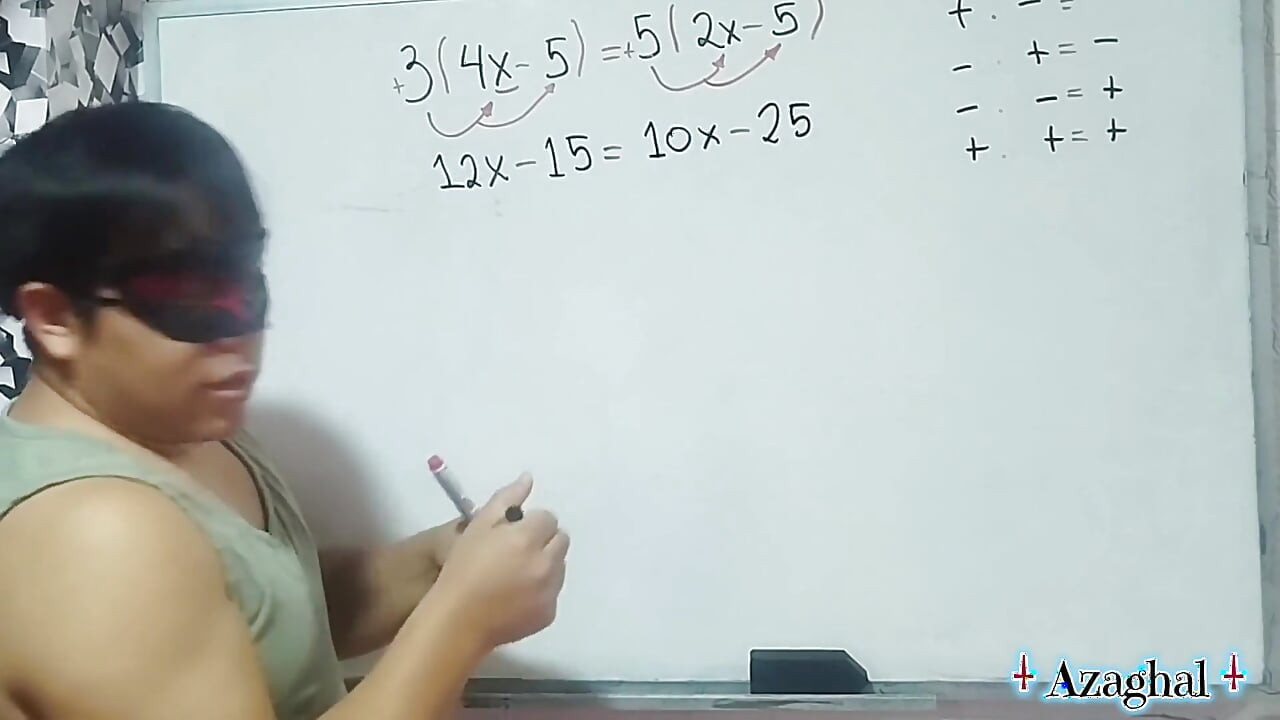 +3(4x-5)=+5(2x-5)
12x-15=10x-25
+ . - =
- . + = -
- . - = +
+ . + = +
Azaghal